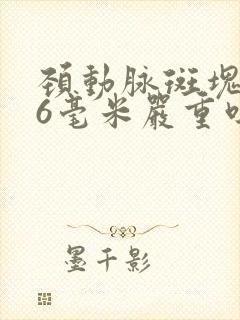 頚動脉斑塊
6毫米嚴重
墨千影